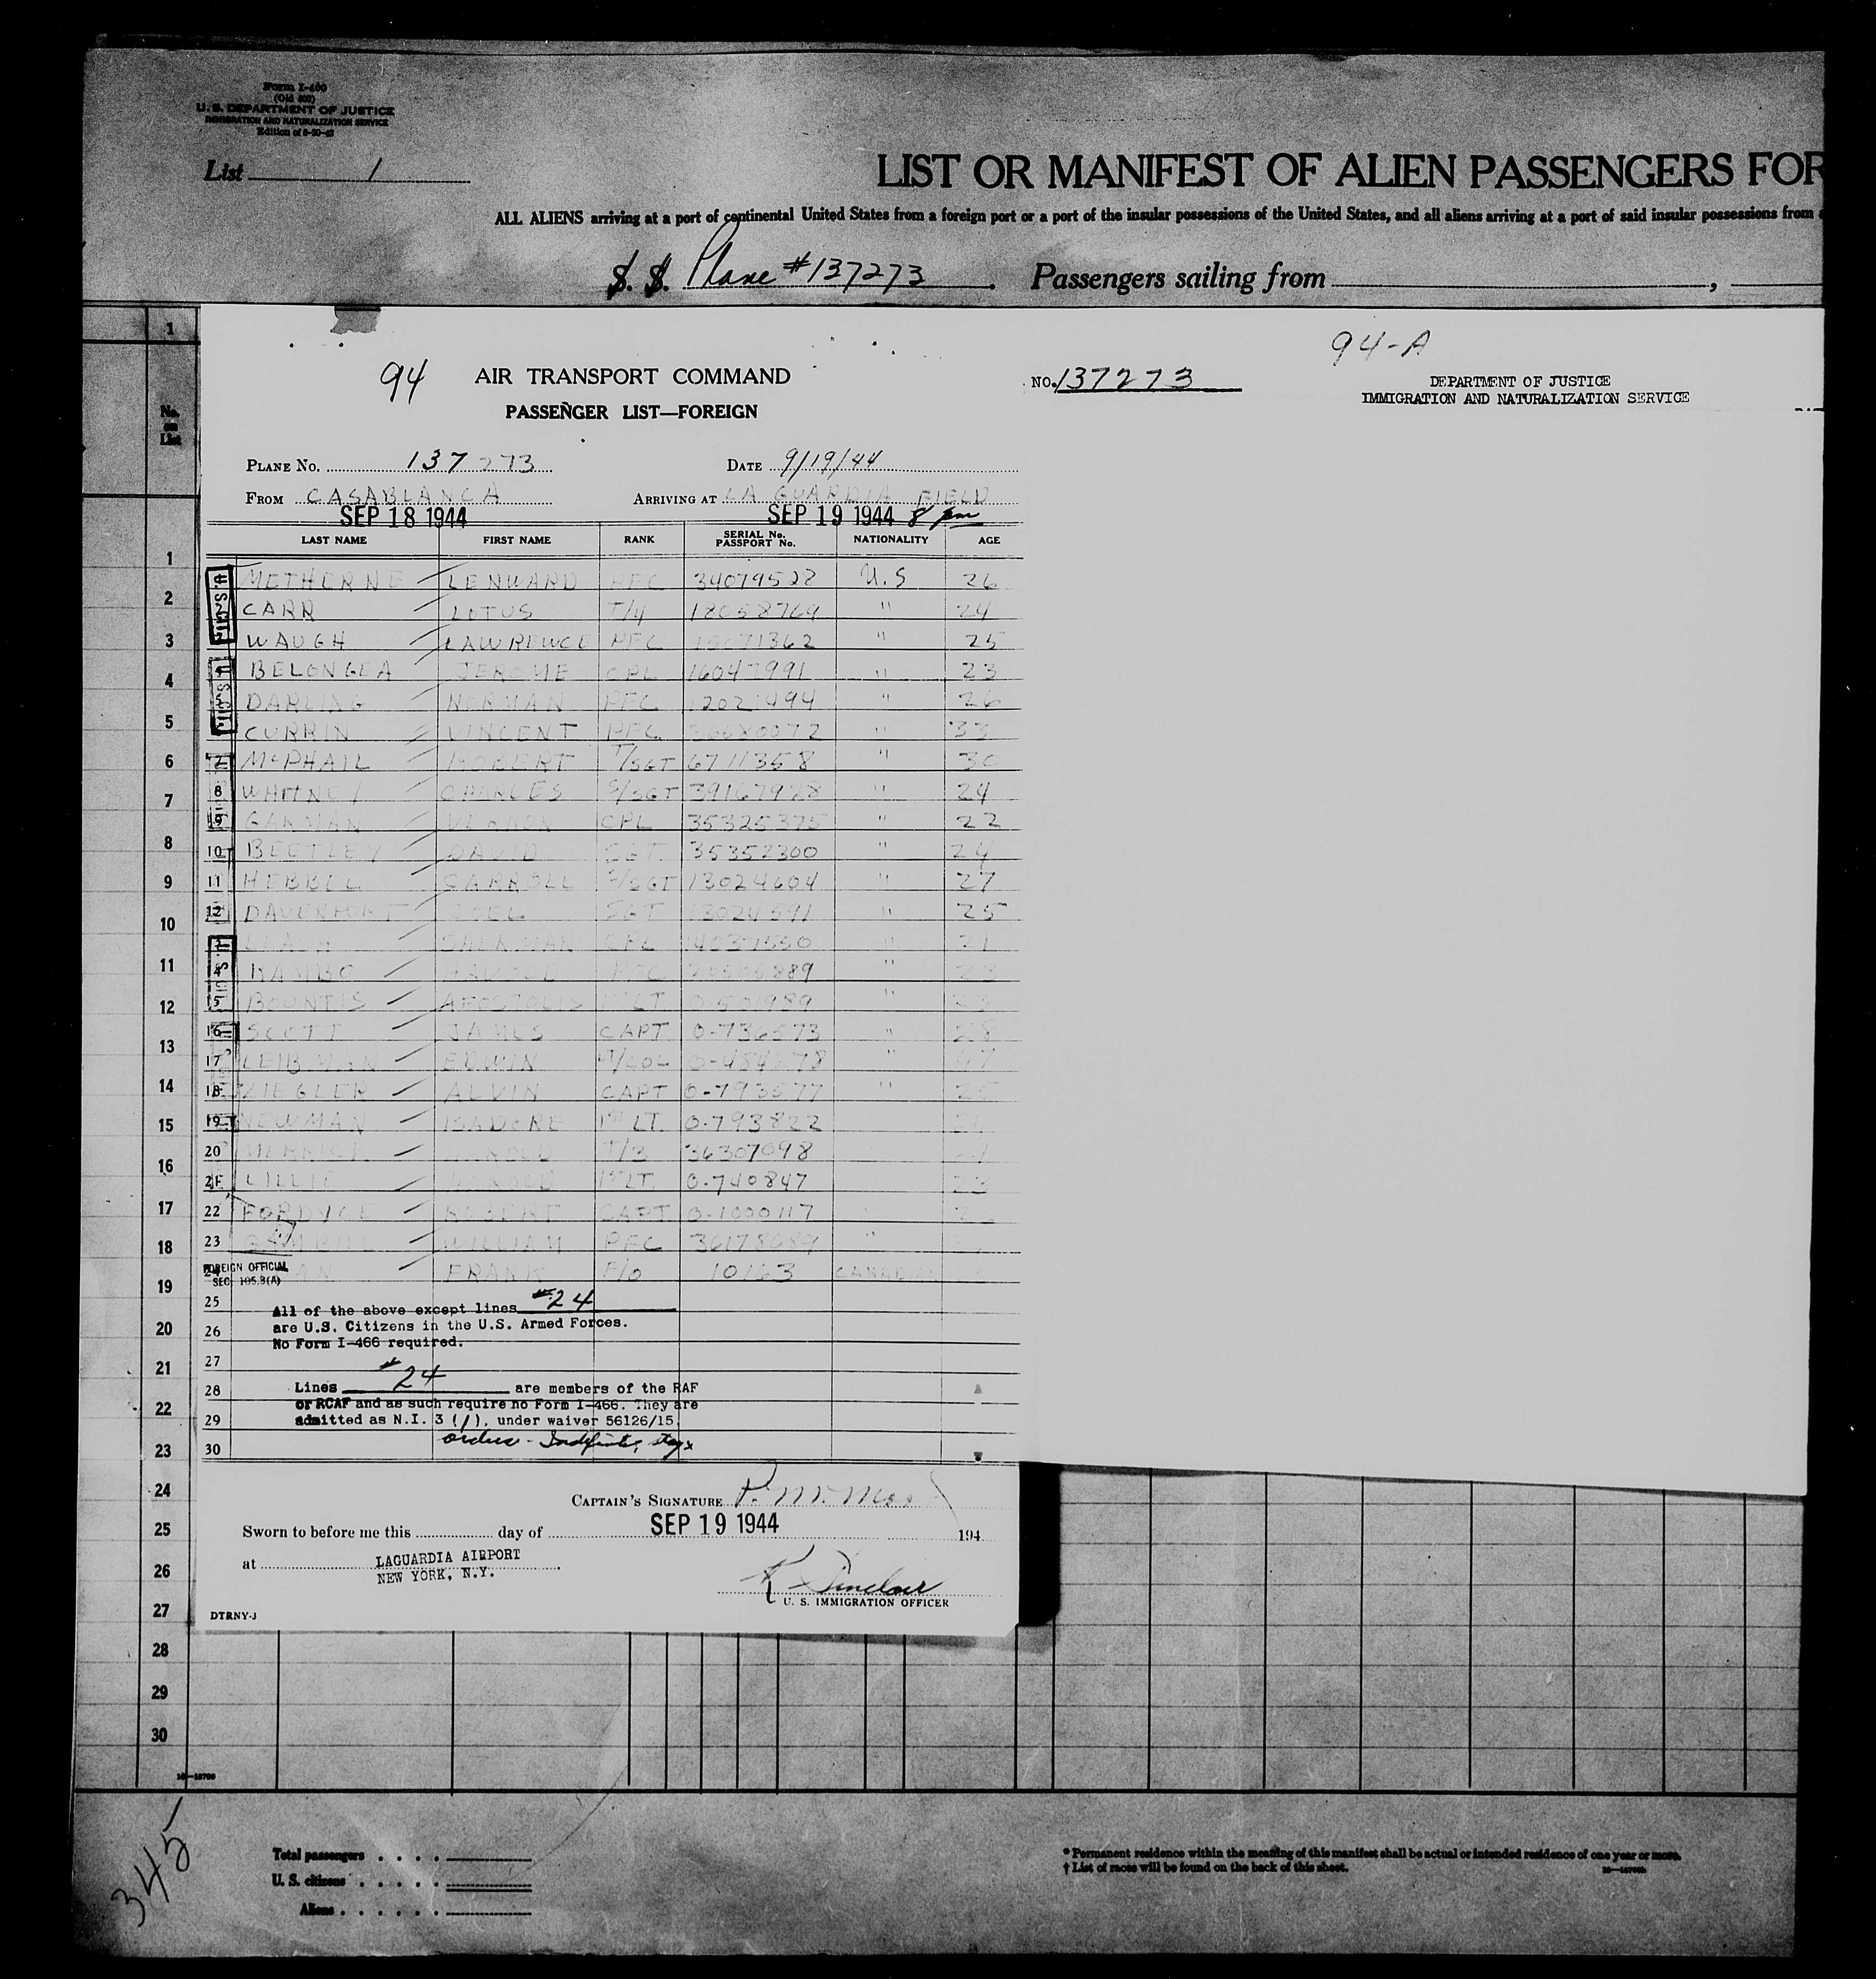 Form I-400
(Old 500)
U. S. DEPARTMENT OF JUSTICE
IMMIGRATION AND NATURALIZATION SERVICE
List 1
LIST OR MANIFEST OF ALIEN PASSENGERS FOR
ALL ALIENS arriving at a port of continental United States from a foreign port or a port of the insular possessions of the United States, and all aliens arriving at a port of said insular possessions from
S. S. Plane #137273. Passengers sailing from
94-A
94 AIR TRANSPORT COMMAND NO. 137273
PASSENGER LIST—FOREIGN
DEPARTMENT OF JUSTICE
IMMIGRATION AND NATURALIZATION SERVICE
No. on List
PLANE No. 137273 DATE 9/19/44
FROM CASABLANCA ARRIVING AT LA GUARDIA FIELD
SEP 18 1944 SEP 19 1944 8 pm
LAST NAME FIRST NAME RANK SERIAL No. PASSPORT No. NATIONALITY AGE
METHERNE LENWARD PFC 34079528 U.S 26
CARR LOTUS T/4 18058769 " 24
WAUGH LAWRENCE PFC " 25
BELONGEA JEROME CPL 16047991 " 23
DARLING NORMAN PFC " 26
CURRIN VINCENT PFC " 33
McPHAIL ROBERT T/SGT 6711358 " 30
8 WHITNEY CHARLES S/SGT 39167928 " 24
9 GARMAN VERNON CPL 35325375 " 22
10 BEETLEY DAVID SGT 35352300 " 24
11 HEBBEL CARROLL S/SGT 13024604 " 27
12 DAVENPORT JOEL SGT 13024591 " 25
CPL " 21
RAMBO HAROLD PFC " 23
15 BOUNTIS APOSTOLIS 1st LT 0-501989 "
16 SCOTT JAMES CAPT 0-736573 " 28
17 LEIBMAN EDWIN LT/COL " 47
18 ZIEGLER ALVIN CAPT 0-793577 " 25
19 NEWMAN ISADORE 1st LT. 0-793822
20 T/3 36307098
21 1st LT. 0-740847 23
22 FORDYCE ROBERT CAPT 0-1000117
23 WILLIAM PFC 36178689 "
FRANK F/O 10163 CANADIAN
FOREIGN OFFICIAL
SEC. 105.3(A)
25 All of the above except lines #24
26 are U.S. Citizens in the U.S. Armed Forces.
No Form I-466 required.
27
28 Lines #24 are members of the RAF
or RCAF and as such require no Form I-466. They are
29 admitted as N.I. 3 (1), under waiver 56126/15.
30 orders - Indefinite stay
CAPTAIN'S SIGNATURE
Sworn to before me this day of SEP 19 1944 194
at LAGUARDIA AIRPORT
NEW YORK, N.Y.
K Sinclair
U. S. IMMIGRATION OFFICER
DTRNY-J
1
1
2
3
4
5
6
7
8
9
10
11
12
13
14
15
16
17
18
19
20
21
22
23
24
25
26
27
28
29
30
345
Total passengers
U. S. citizens
Aliens
* Permanent residence within the meaning of this manifest shall be actual or intended residence of one year or more.
† List of races will be found on the back of this sheet.